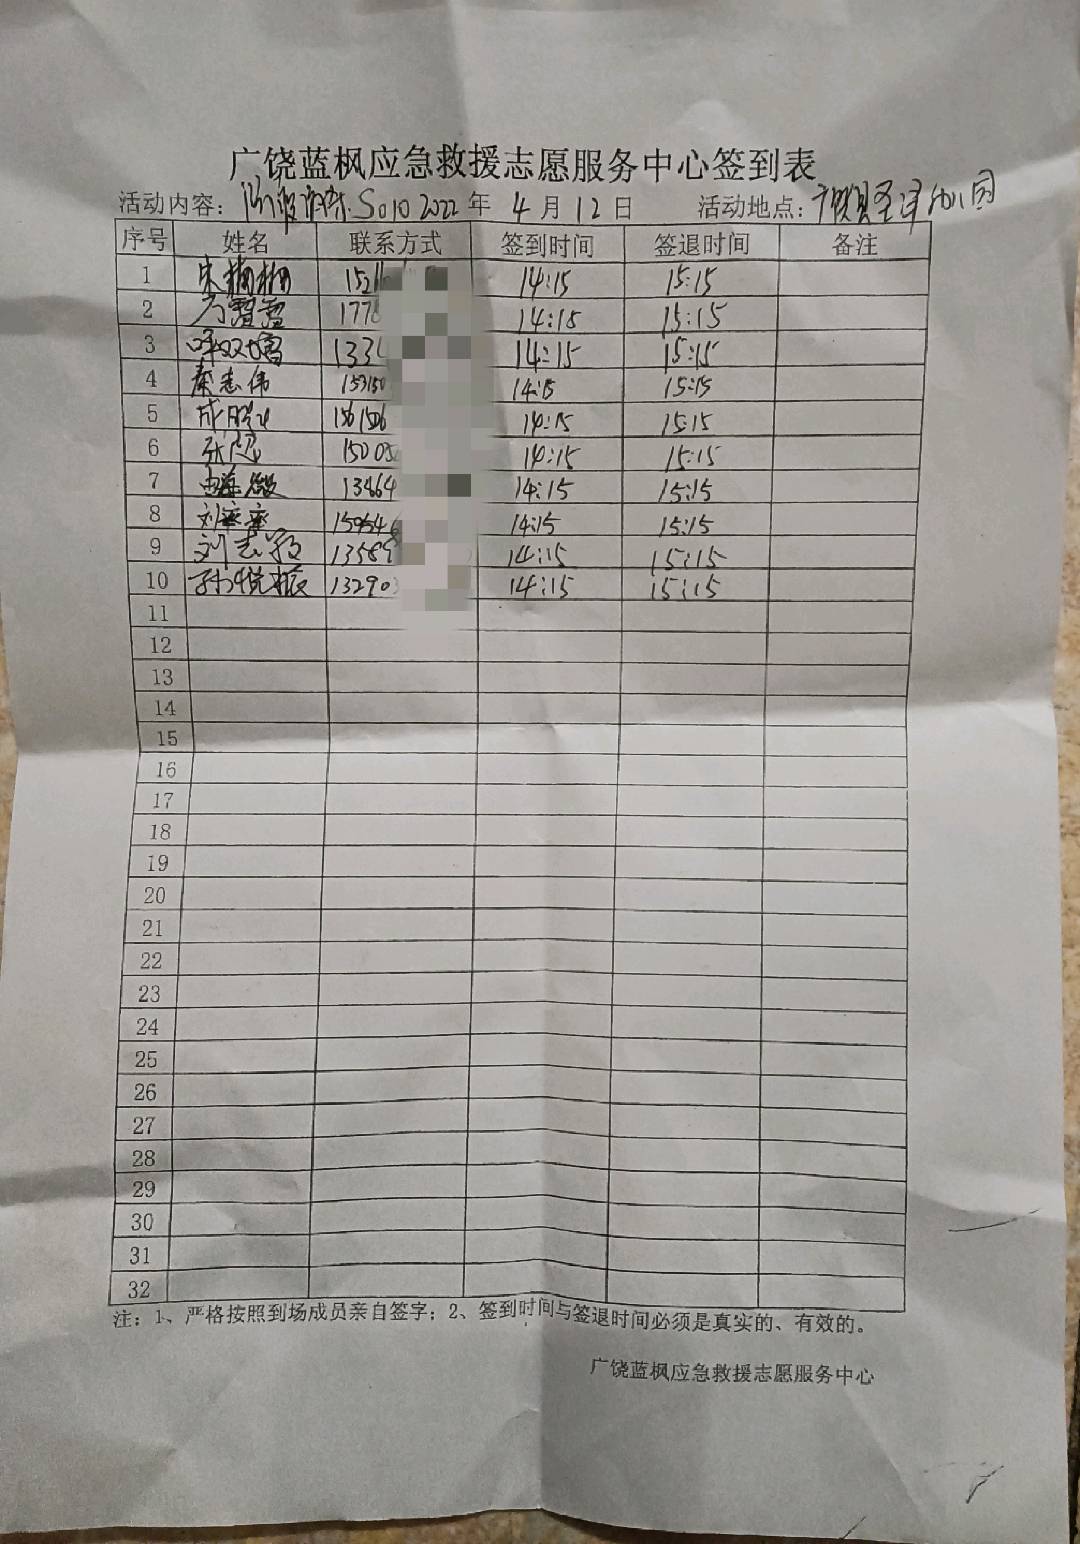 广饶蓝枫应急救援志愿服务中心签到表
活动内容: S010 2022年 4月12日 活动地点:
序号 姓名 联系方式 签到时间 签退时间 备注
1 宋 152 14:15 15:15
2 177 14:15 15:15
3 133 14:15 15:15
4 秦志伟 153150 14:15 15:15
5 成 156 14:15 15:15
6 张 15005 14:15 15:15
7 13464 14:15 15:15
8 刘 150546 14:15 15:15
9 刘志 13589 14:15 15:15
10 孙悦振 13290 14:15 15:15
11
12
13
14
15
16
17
18
19
20
21
22
23
24
25
26
27
28
29
30
31
32
注:1、严格按照到场成员亲自签字;2、签到时间与签退时间必须是真实的、有效的。
广饶蓝枫应急救援志愿服务中心